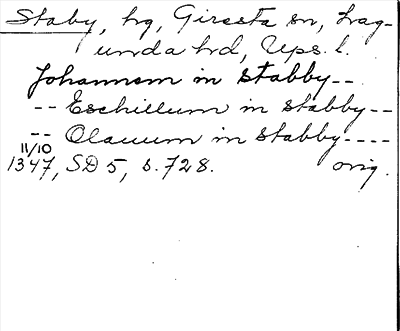 Staby, hg, Giresta sn, Lag-
unda hd, Ups. l.
Johannem in stabby--
-- Eschillum in stabby--
-- Olauum in stabby----
11/10
1347, SD 5, s. 728. orig.